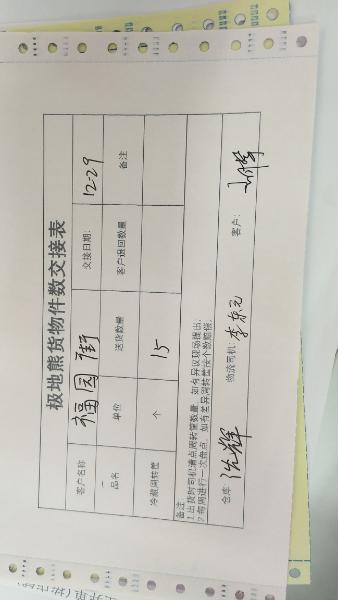 极地熊货物件数交接表
客户名称 福园街 交接日期: 12-29
品名 单价 送货数量 客户退回数量 备注
冷藏周转筐 个 15
备注
1.出货时司机清点周转筐数量，如有异议现场提出.
2.每周进行一次盘点，如有差异周转筐按个数赔偿.
仓库: 沈辉 物流司机: 李东元 客户: